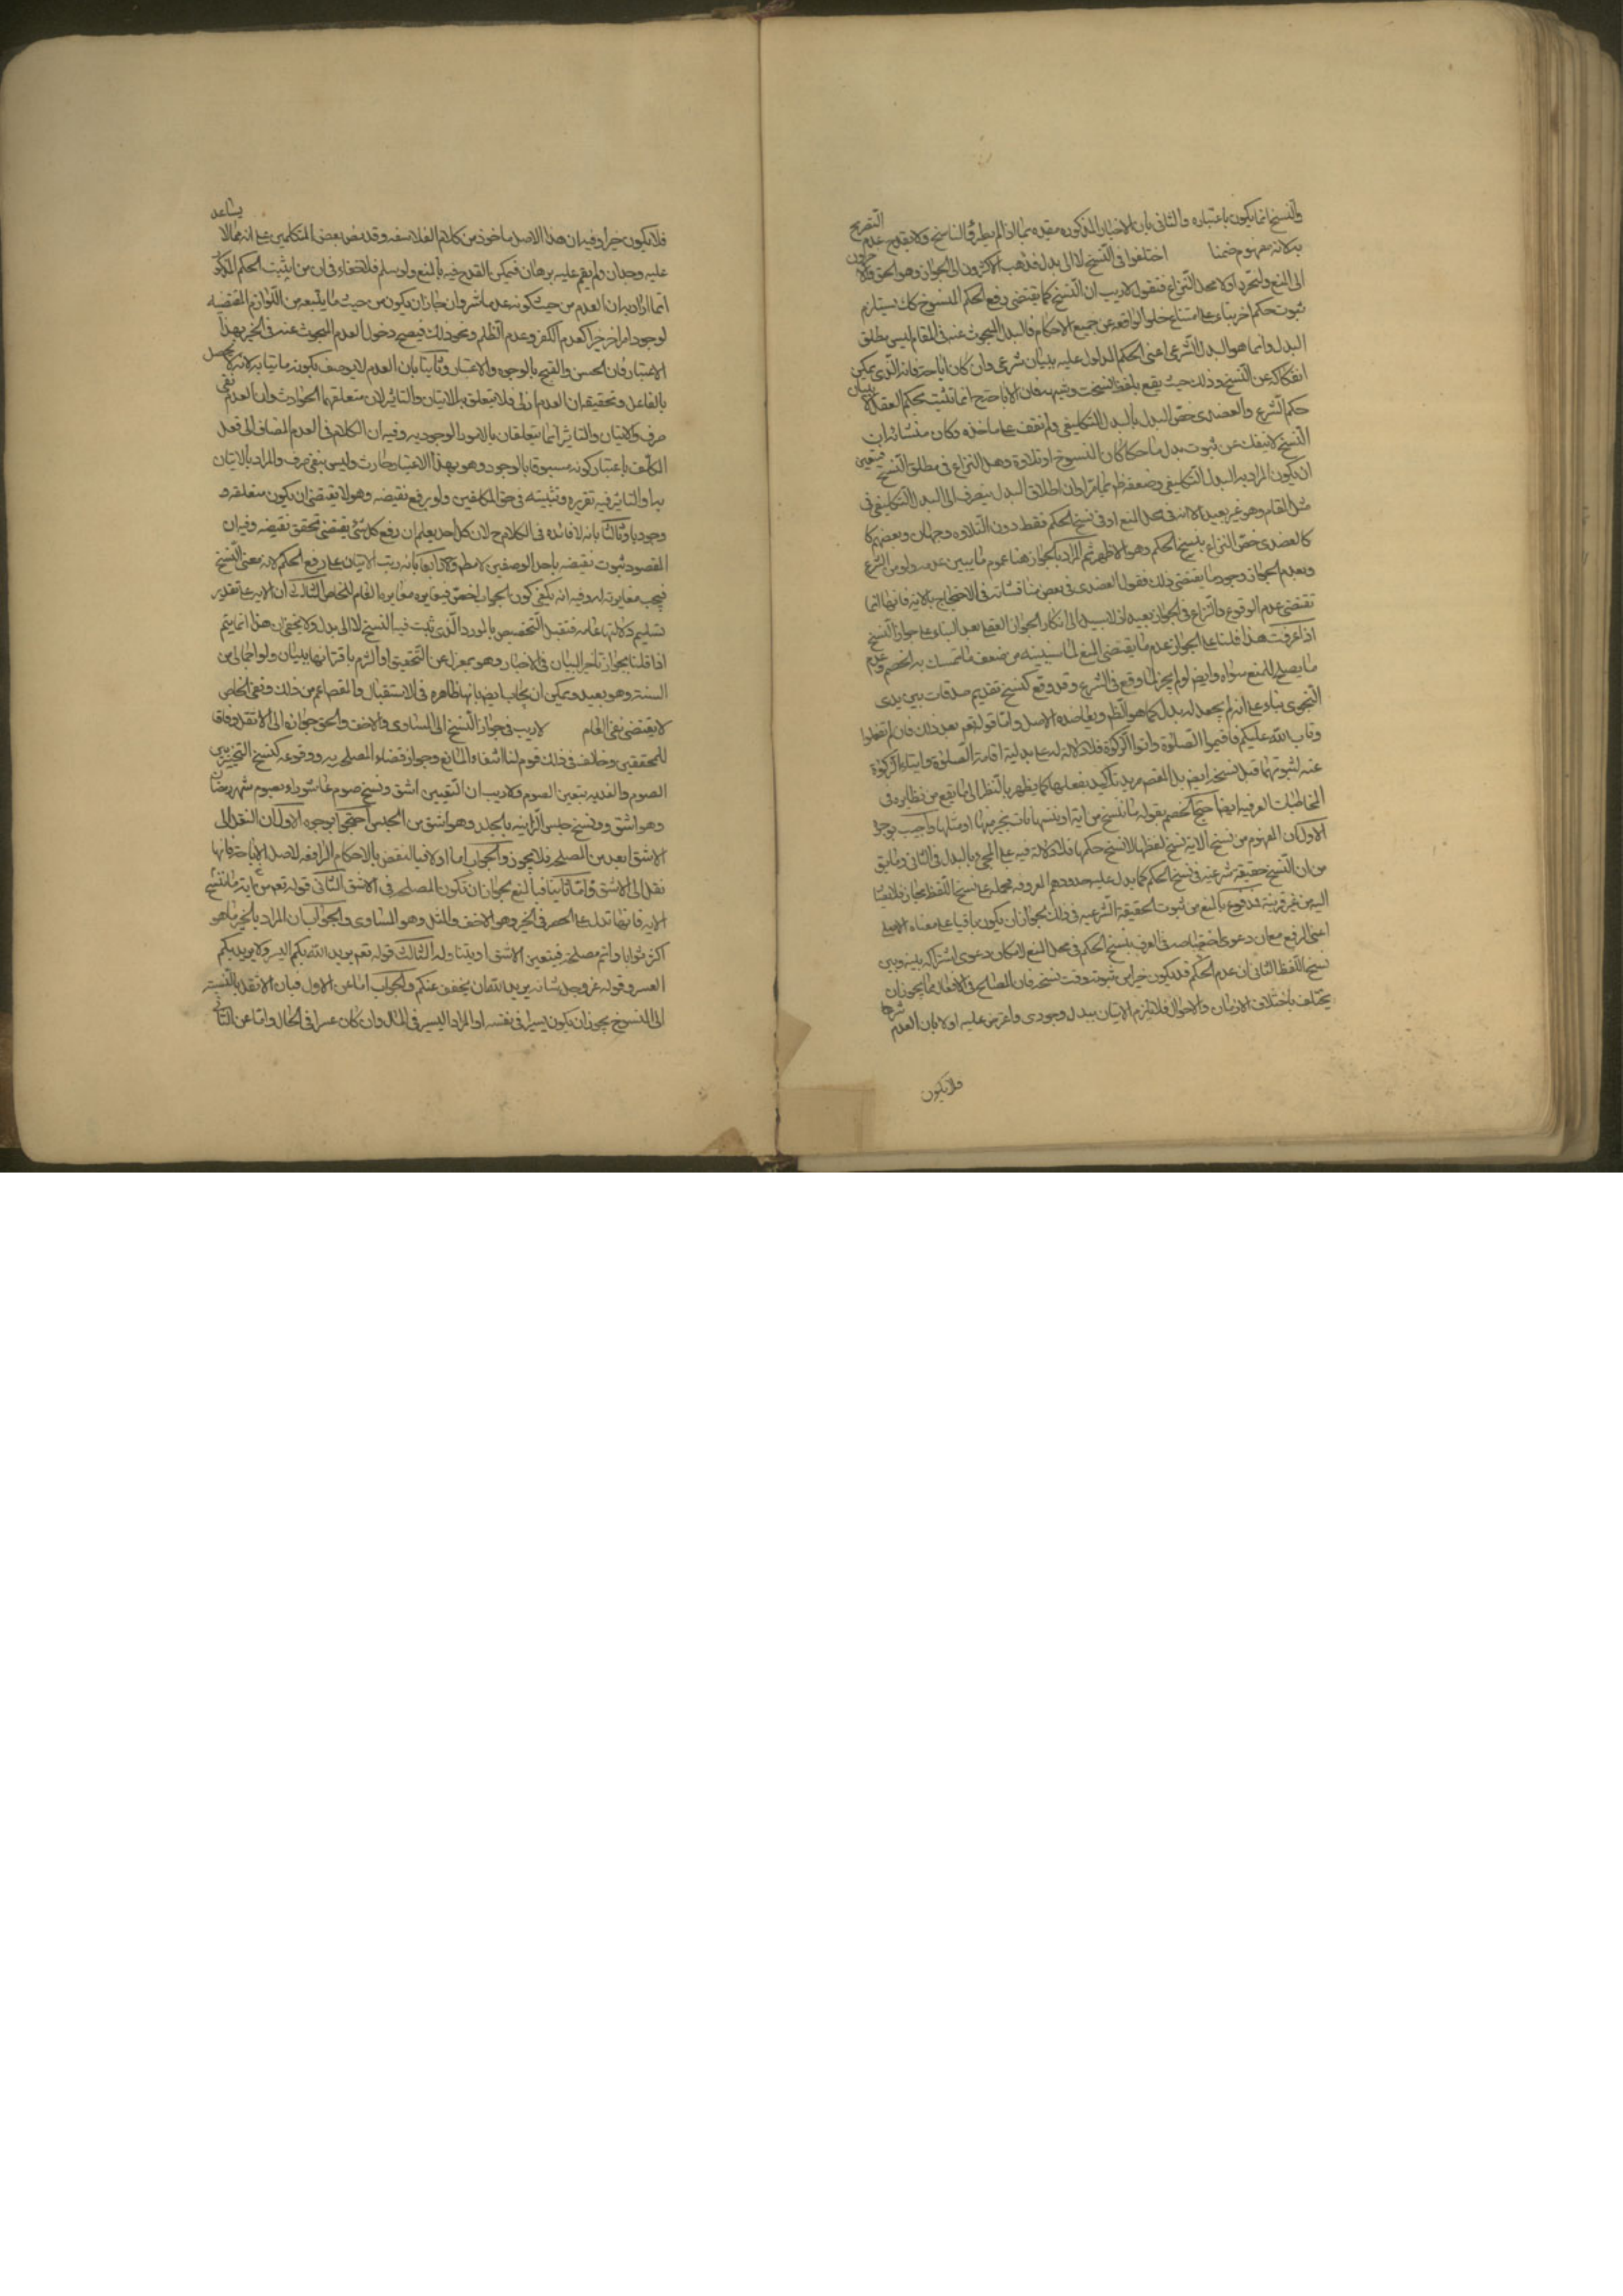 والنسخ انما يكون باعتباره والثانى بان الاخبار المذكوره مقيده بما اذا لم يطرق الناسخ ولا يقدح عدم التصريح
به لانه مفهوم ضمنا اختلفوا فى النسخ لا الى بدل فذهب الاكثرون الى الجواز وهو الحق
الى المنع ولنحرر اولا محل النزاع فنقول لا ريب ان النسخ كما يقتضى رفع الحكم المنسوخ كك يستلزم
ثبوت حكم اخر بناء على امتناع خلو الواقعه عن جميع الاحكام فالبدل المبحوث عنه فى المقام ليس مطلق
البدل وانما هو البدل الشرعى اعنى الحكم المدلول عليه ببيان شرعى وان كان اباحة فانه الذى يمكن
انفكاكه عن النسخ وذلك حيث يقع بلفظ نسخت وشبهه فان الاباحة ح انما تثبت بحكم العقل لا ببيان
حكم الشرع والعضدى خص البدل بالبدل التكليفى ولم نقف على ماخذه وكان منشائه ان
النسخ لا ينفك عن ثبوت بدل ما حكما كان المنسوخ او تلاوة وهل النزاع فى مطلق النسخ فتعين
ان يكون المراد به البدل التكليفى وضعفه ظ مما مر او ان اطلاق البدل ينصرف الى البدل التكليفى فى
مثل المقام وهو غير بعيد الا انه فى محل المنع او فى نسخ الحكم فقط دون التلاوه وجهان وبعضهم
كالعضدى خص النزاع بنسخ الحكم وهو الاظهر ثم المراد بالجواز هنا عموم ما يبين عدمه ولو من الشرع
وبعدم الجواز وجود ما يقتضى ذلك فقول العضدى فى بعض مناقشاته فى الاحتجاج بالاية فانها انما
تقتضى عدم الوقوع والنزاع فى الجواز بعيد اذ لا سبيل الى انكار الجواز العقلى بعد البناء على جواز النسخ
اذا عرفت هذا فلنا على الجواز عدم ما يقتضى المنع لما سنبينه من ضعف ما تمسك به الخصم وعدم
ما يصلح للمنع سواه وايض لو لم يجز لما وقع فى الشرع وقد وقع كنسخ تقديم صدقات بين يدى
النجوى بناء على انه لم يجعل له بدل كما هو الظ ويعاضده الاصل واما قوله تعم بعد ذلك فان لم تفعلوا
وتاب الله عليكم فاقيموا الصلوة واتوا الزكوة فلا دلالة له على بدلية اقامة الصلوة وايتاء الزكوة
عنه لثبوتهما قبل نسخه ايض بل المقصم مريد تاكيد بفعلهما كما يظهر بالنظر الى ما يقع من نظايره فى
المخاطبات العرفيه ايضا احتج الخصم بقوله ما ننسخ من اية او ننسها نات بخير منها او مثلها واجيب بوجوه
الاول ان المفهوم من نسخ الاية نسخ لفظها لا نسخ حكمها فلا دلالة فيه على المجىء بالبدل فى الثانى وما يق
من ان النسخ حقيقة شرعيه فى نسخ الحكم كما يدل عليه حدودهم المعروفه فحمله على نسخ اللفظ مجاز فلا يصار
اليه من غير قرينة فمدفوع بالمنع من ثبوت الحقيقة الشرعيه فى ذلك بجواز ان يكون باقيا على معناه الاصلى
اعنى الرفع مع ان دعوى اختصاصه فى العرف بنسخ الحكم فى محل المنع لامكان دعوى اشتراكه بينه وبين
نسخ اللفظ الثانى ان عدم الحكم قد يكون خيرا من ثبوته وقت نسخه فان المصالح فى الافعال مما يجوز ان
يختلف باختلاف الازمان والاحوال فلا يلزم الاتيان ببدل وجودى واعترض عليه اولا بان العدم
فلا يكون
فلا يكون خيرا وفيه ان هذا الاصل ماخوذ من كلام الفلاسفه وقد نص بعض المتكلمين على انه مما لا يساعد
عليه وجدان ولم يقم عليه برهان فيمكن القدح فيه بالمنع ولو سلم فلا خفاء فى ان من اثبت الحكم المذكور
انما اراد به ان العدم من حيث كونه عدما شر وان جاز ان يكون من حيث ما يتبعه من اللوازم المقتضيه
لوجود امر اخر خيرا كعدم الكفر وعدم الظلم ونحو ذلك فيصح دخول العدم المبحوث عنه فى الخير بهذا
الاعتبار فان الحسن والقبح بالوجوه والاعتبار وثانيا بان العدم لا يوصف بكونه ماتيا به لانه لا يحصل
بالفاعل وتحقيقه ان العدم ازلى فلا يتعلق به الاتيان والتاثير لان متعلقهما الحوادث وان العدم نفى
صرف والاتيان والتاثير انما يتعلقان بالامور الوجوديه وفيه ان الكلام فى العدم المضاف الى فعل
المكلف باعتبار كونه مسبوقا بالوجود وهو بهذا الاعتبار حادث وليس بنفى صرف والمراد بالاتيان
به او التاثير فيه تقريره وتثبيته فى حق المكلفين ولو برفع نقيضه وهو لا يقتضى ان يكون متعلقه
وجوديا وثالثا بانه لا فائده فى الكلام ح لان كل احد يعلم ان رفع كل شىء يقتضى تحقق نقيضه وفيه ان
المقصود ثبوت نقيضه باحد الوصفين لا مطلقا ورابعا بانه رتب الاتيان على رفع الحكم لانه معنى النسخ
فيجب مغايرته له وفيه انه يكفى كون الجواب اخص فيغايره مغايرة العام للخاص الثالث ان الاية على تقدير
تسليم دلالتها عامه فتقبل التخصيص بالمورد الذى ثبت فيه النسخ لا الى بدل ولا يخفى ان هذا انما يتم
اذا قلنا بجواز تاخير البيان فى الاخبار وهو بمعزل عن التحقيق او التزم باقترانها ببيان ولو اجمالى من
السنة وهو بعيد ويمكن ان يجاب ايض بانها ظاهره فى الاستقبال والمقصم اعم من ذلك ونفى الخاص
لا يقتضى نفى العام لا ريب فى جواز النسخ الى المساوى والاخف والحق جوازه الى الاثقل وفاقا
للمحققين وخالف فى ذلك قوم لنا انتفاء المانع وجواز قضاء المصلحه به ووقوعه كنسخ التخيير بين
الصوم والفديه بتعين الصوم ولا ريب ان التعيين اشق ونسخ صوم عاشورا بصوم شهر رمضان
وهو اشق ونسخ حبس الزانيه بالجلد وهو اشق من الحبس احتجوا بوجوه الاول ان النقل الى
الاشق ابعد من المصلحه فلا يجوز والجواب اما اولا فبالنقض بالاحكام الرافعه لاصل الاباحة فانها
نقل الى الاشق واما ثانيا فبالمنع بجواز ان تكون المصلحه فى الاشق الثانى قوله تعم ما ننسخ من اية
الاية فانها تدل على الحصر فى الخير وهو الاخف والمثل وهو المساوى والجواب ان المراد بالخير ما هو
اكثر ثوابا واتم مصلحه فيتعين الاشق او يتناوله الثالث قوله تعم يريد الله بكم اليسر ولا يريد بكم
العسر وقوله عز وجل شانه يريد الله ان يخفف عنكم والجواب اما عن الاول فبان الاثقل بالنسبة
الى المنسوخ يجوز ان يكون يسيرا فى نفسه او المراد اليسر فى المال وان كان عسرا فى الحال واما عن الثانى